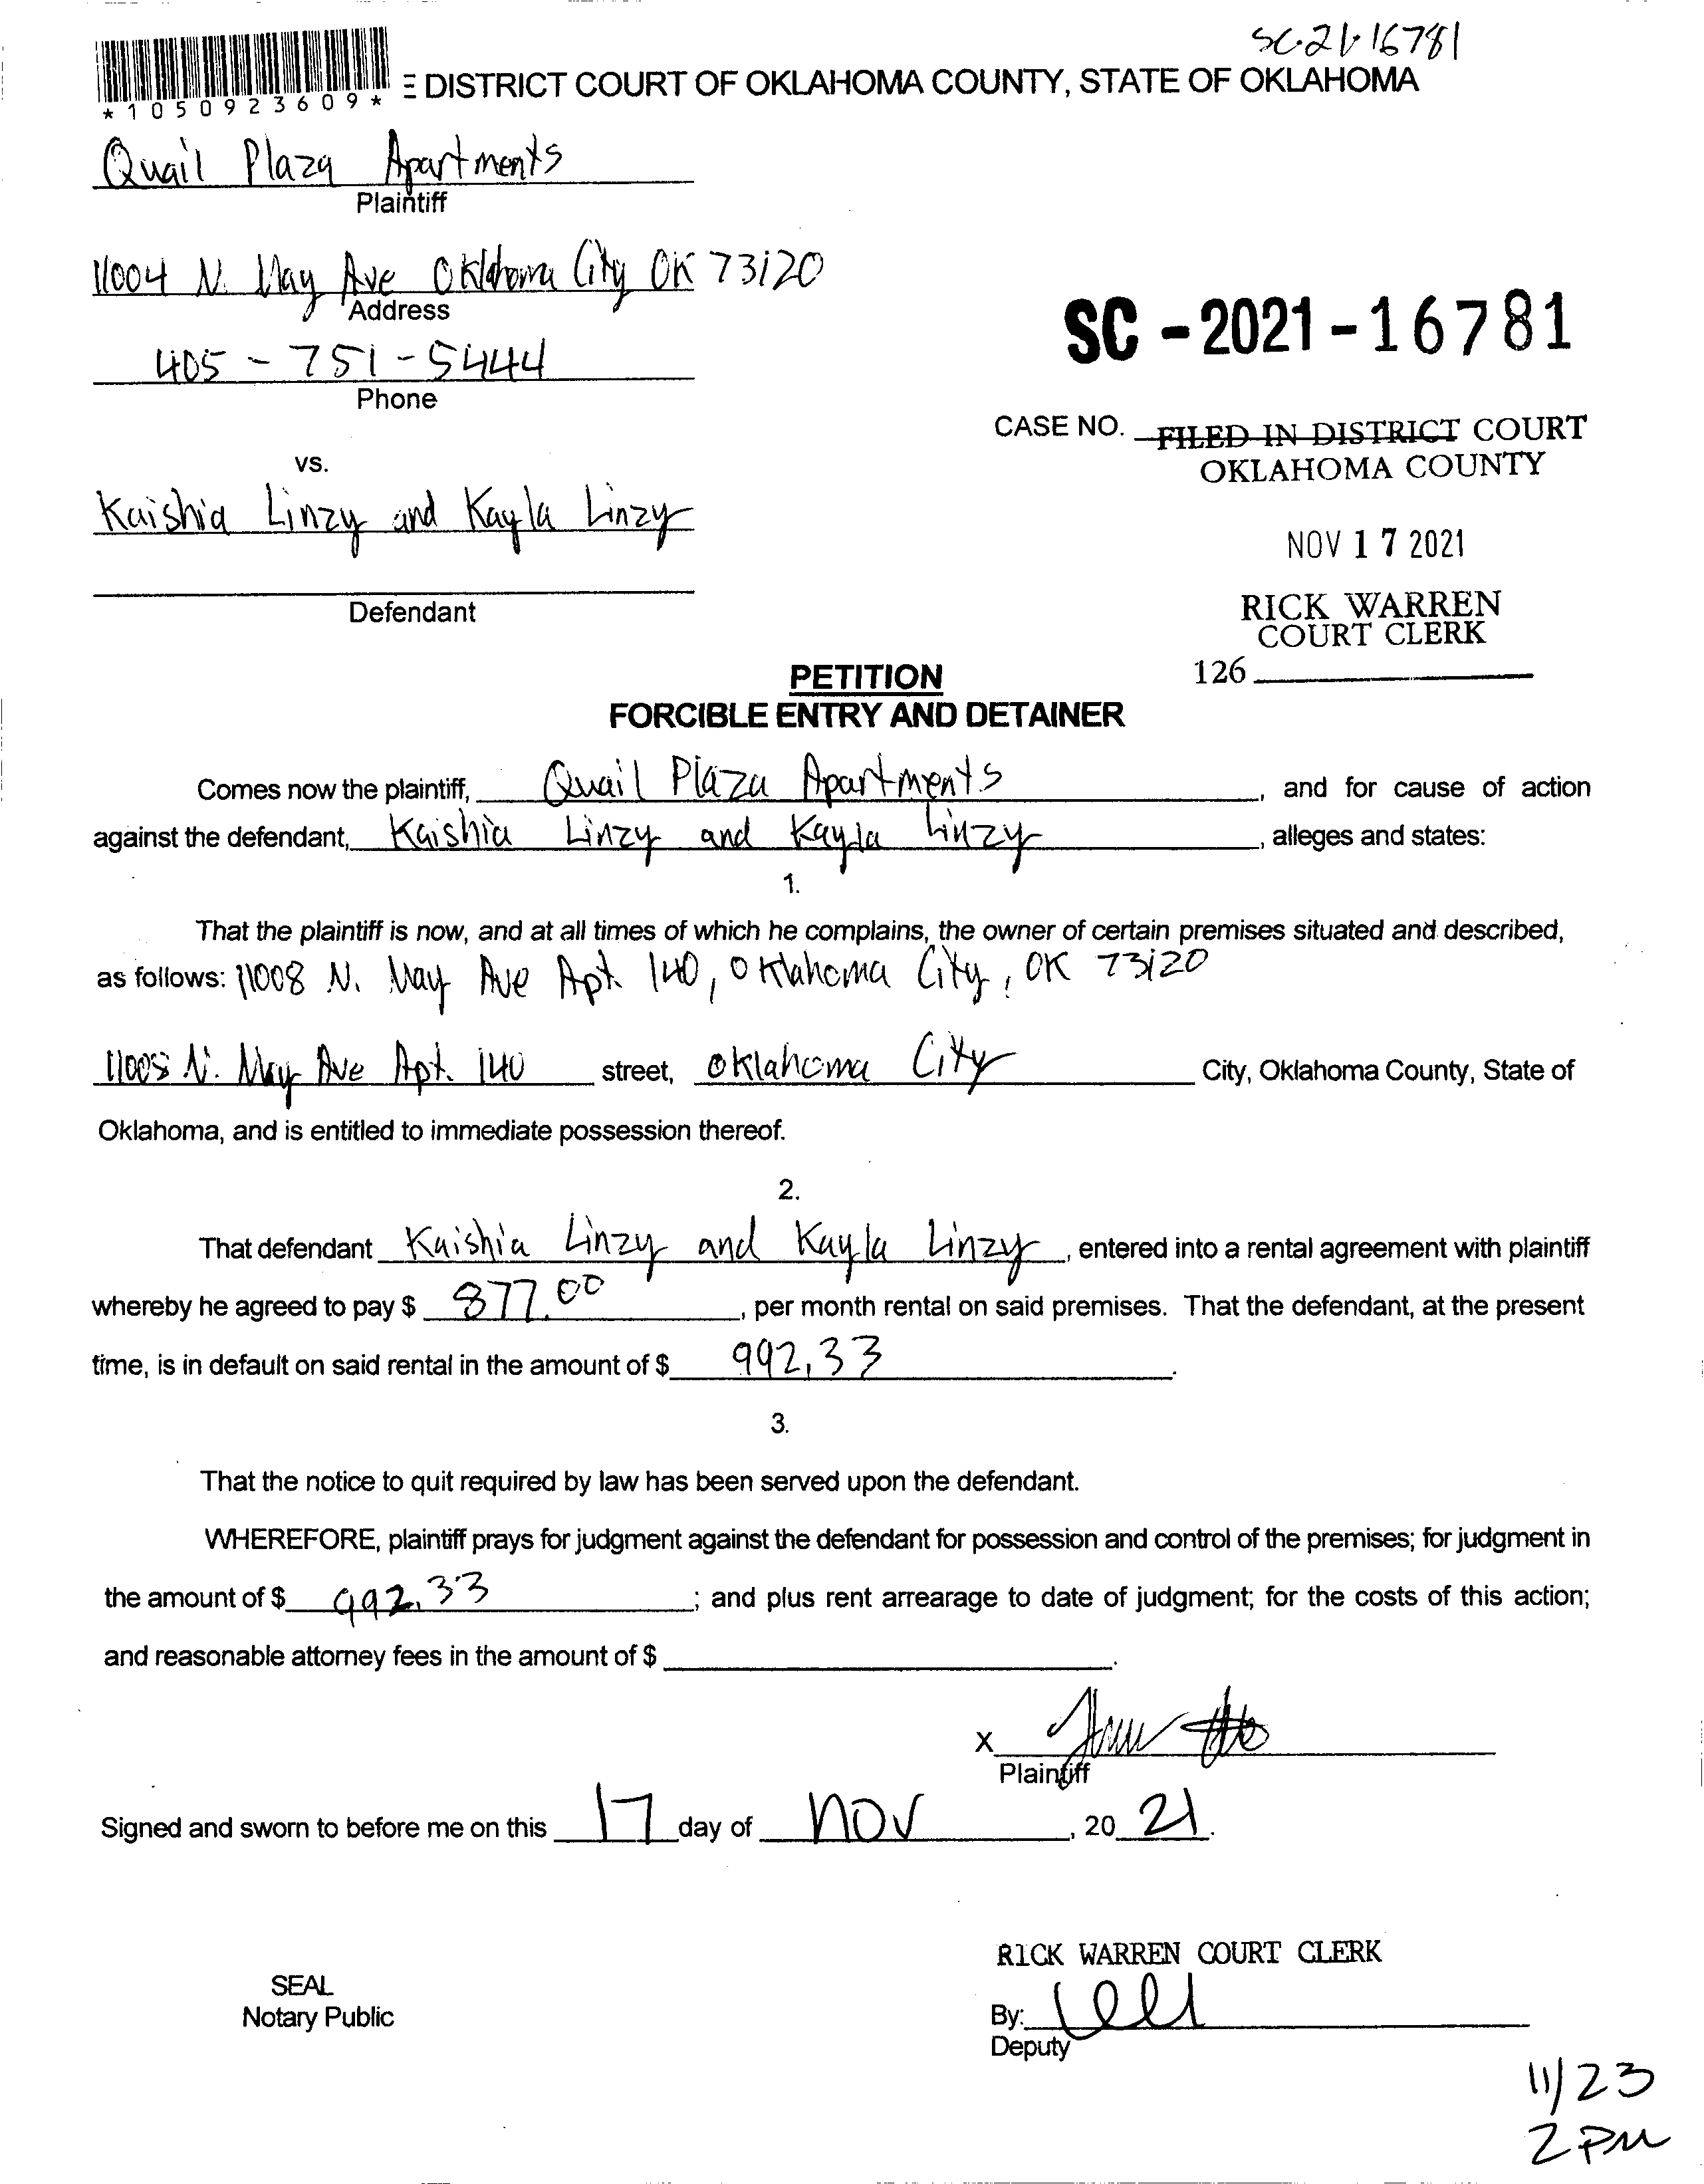 SC-21-16781
*1050923609*
E DISTRICT COURT OF OKLAHOMA COUNTY, STATE OF OKLAHOMA
Quail Plaza Apartments
Plaintiff
11004 N. May Ave Oklahoma City OK 73120
Address
405-751-5444
Phone
SC-2021-16781
CASE NO. FILED IN DISTRICT COURT
OKLAHOMA COUNTY
vs.
Kaishia Linzy and Kayla Linzy
NOV 17 2021
Defendant
RICK WARREN
COURT CLERK
126
PETITION
FORCIBLE ENTRY AND DETAINER
Comes now the plaintiff, Quail Plaza Apartments, and for cause of action
against the defendant, Kaishia Linzy and Kayla Linzy, alleges and states:
1.
That the plaintiff is now, and at all times of which he complains, the owner of certain premises situated and described,
as follows: 11008 N. May Ave Apt. 140, Oklahoma City, OK 73120
11008 N. May Ave Apt. 140 street, Oklahoma City City, Oklahoma County, State of
Oklahoma, and is entitled to immediate possession thereof.
2.
That defendant Kaishia Linzy and Kayla Linzy, entered into a rental agreement with plaintiff
whereby he agreed to pay $ 877.00, per month rental on said premises. That the defendant, at the present
time, is in default on said rental in the amount of $ 992.33.
3.
That the notice to quit required by law has been served upon the defendant.
WHEREFORE, plaintiff prays for judgment against the defendant for possession and control of the premises; for judgment in
the amount of $ 992.33; and plus rent arrearage to date of judgment; for the costs of this action;
and reasonable attorney fees in the amount of $.
X
Plaintiff
Signed and sworn to before me on this 17 day of nov, 20 21.
RICK WARREN COURT CLERK
SEAL
Notary Public
By:
Deputy
11/23
2 PM